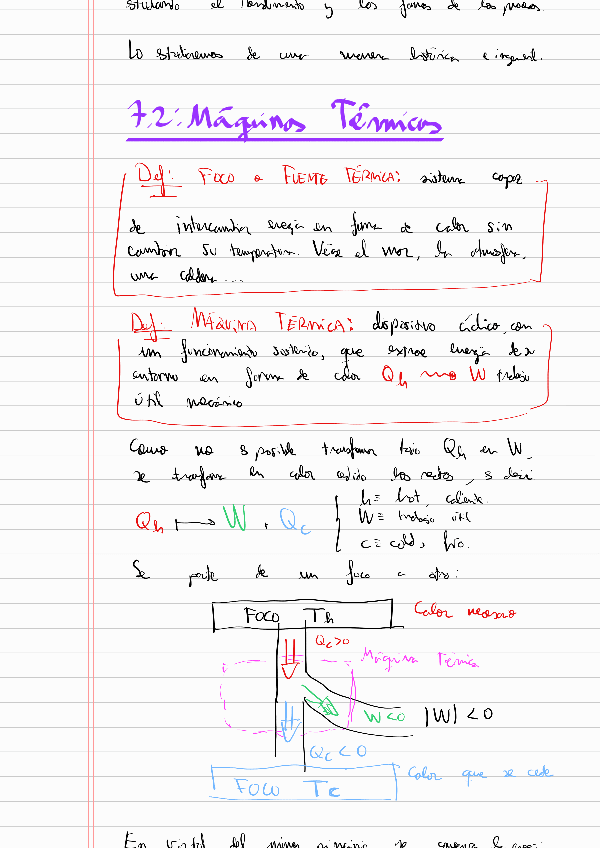 el rendimiento y las formas de los procesos.
Lo estudiaremos de una manera histórica e ingenieril.
7.2: Máquinas Térmicas
Def: FOCO o FUENTE TÉRMICA: sistema capaz
de intercambiar energía en forma de calor sin
cambiar su temperatura. Véase el mar, la atmosfera,
una caldera...
Def: MÁQUINA TÉRMICA: dispositivo cíclico, con
un funcionamiento sostenido, que extrae energía de su
entorno en forma de calor Qh W trabajo
útil mecánico
Como no es posible transformar todo Qh en W,
se transforma en calor cedido los restos, es decir
Qh ⟼ W + Qc
h ≡ hot, caliente.
W ≡ trabajo útil
c ≡ cold, frío.
Se parte de un foco a otro:
FOCO Th
Calor necesario
Qc>0
Máquina Térmica
W<0 |W| < 0
Qc < 0
FOCO Tc
Calor que se cede
del primer principio se